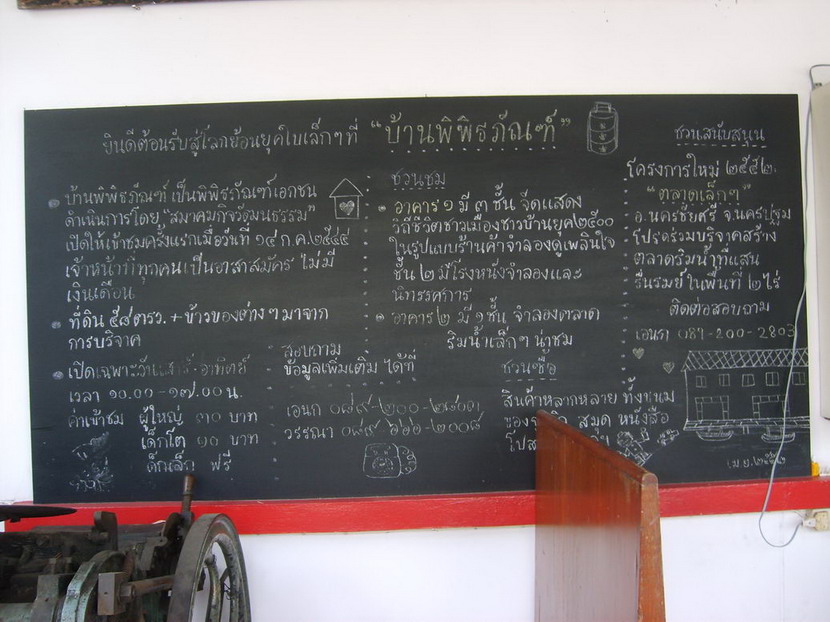 ยินดีต้อนรับสู่โลกย้อนยุคใบเล็กๆที่ "บ้านพิพิธภัณฑ์"
บ้านพิพิธภัณฑ์ เป็นพิพิธภัณฑ์เอกชน
ดำเนินการโดย "สมาคมกิจวัฒนธรรม"
เปิดให้เข้าชมครั้งแรกเมื่อวันที่ ๑๔ ก.ค.๒๕๔๔
เจ้าหน้าที่ทุกคนเป็นอาสาสมัคร ไม่มี
เงินเดือน
ที่ดิน ๕๘ ตรว. + ข้าวของต่างๆมาจาก
การบริจาค
เปิดเฉพาะวันเสาร์-อาทิตย์
เวลา ๑๐.๐๐-๑๗.๐๐ น.
ค่าเข้าชม ผู้ใหญ่ ๓๐ บาท
เด็กโต ๑๐ บาท
เด็กเล็ก ฟรี
สอบถาม
ข้อมูลเพิ่มเติม ได้ที่
เอนก ๐๘๙-๒๐๐-๒๘๐๓
วรรณา ๐๘๙ ๖๖๖-๒๐๐๘
ชวนชม
อาคาร ๑ มี ๓ ชั้น จัดแสดง
วิถีชีวิตชาวเมืองชาวบ้านยุค๒๕๐๐
ในรูปแบบร้านค้าจำลองดูเพลินใจ
ชั้น ๒ มีโรงหนังจำลองและ
นิทรรศการ
อาคาร ๒ มี ๑ ชั้น จำลองตลาด
ริมน้ำเล็กๆ น่าชม
ชวนซื้อ
สินค้าหลากหลาย ทั้งขนม
สมุด หนังสือ
ชวนสนับสนุน
โครงการใหม่ ๒๕๕๒
"ตลาดเล็กๆ"
อ.นครชัยศรี จ.นครปฐม
โปรดร่วมบริจาคสร้าง
ตลาดริมน้ำที่แสน
รื่นรมย์ ในพื้นที่ ๒ ไร่
ติดต่อสอบถาม
เอนก 089-200-2803
เม.ย.๒๕๕๒